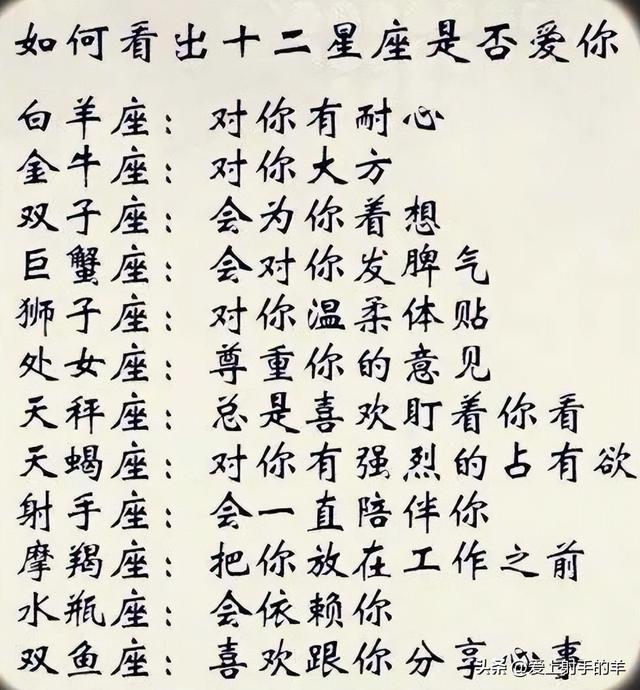 如何看出十二星座是否爱你
白羊座：对你有耐心
金牛座：对你大方
双子座：会为你着想
巨蟹座：会对你发脾气
狮子座：对你温柔体贴
处女座：尊重你的意见
天秤座：总是喜欢盯着你看
天蝎座：对你有强烈的占有欲
射手座：会一直陪伴你
摩羯座：把你放在工作之前
水瓶座：会依赖你
双鱼座：喜欢跟你分享心事
头条 @爱上射手的羊